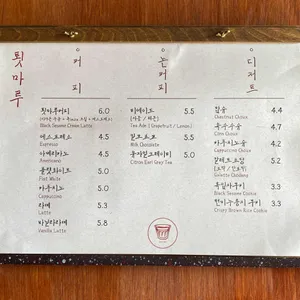 툇마루
커피
논커피
디저트
툇마루커피 6.0
Black Sesame Cream Latte
에스프레소 4.5
Espresso
아메리카노 4.5
Americano
플랫화이트 5.0
Flat White
카푸치노 5.0
Cappuccino
라떼 5.3
Latte
바닐라라떼 5.8
Vanilla Latte
티에이드 5.5
Tea Ade ( Grapefruit / Lemon )
밀크초코 5.5
Milk Chocolate
5.5
Citron Earl Grey Tea
4.4
Chestnut Choux
4.2
Corn Choux
4.2
Cappuccino Choux
갈레트쿠키
Galette Cookies
흑임자쿠키
Black Sesame Cookie
현미누룽지쿠키
Crispy Brown Rice Cookie